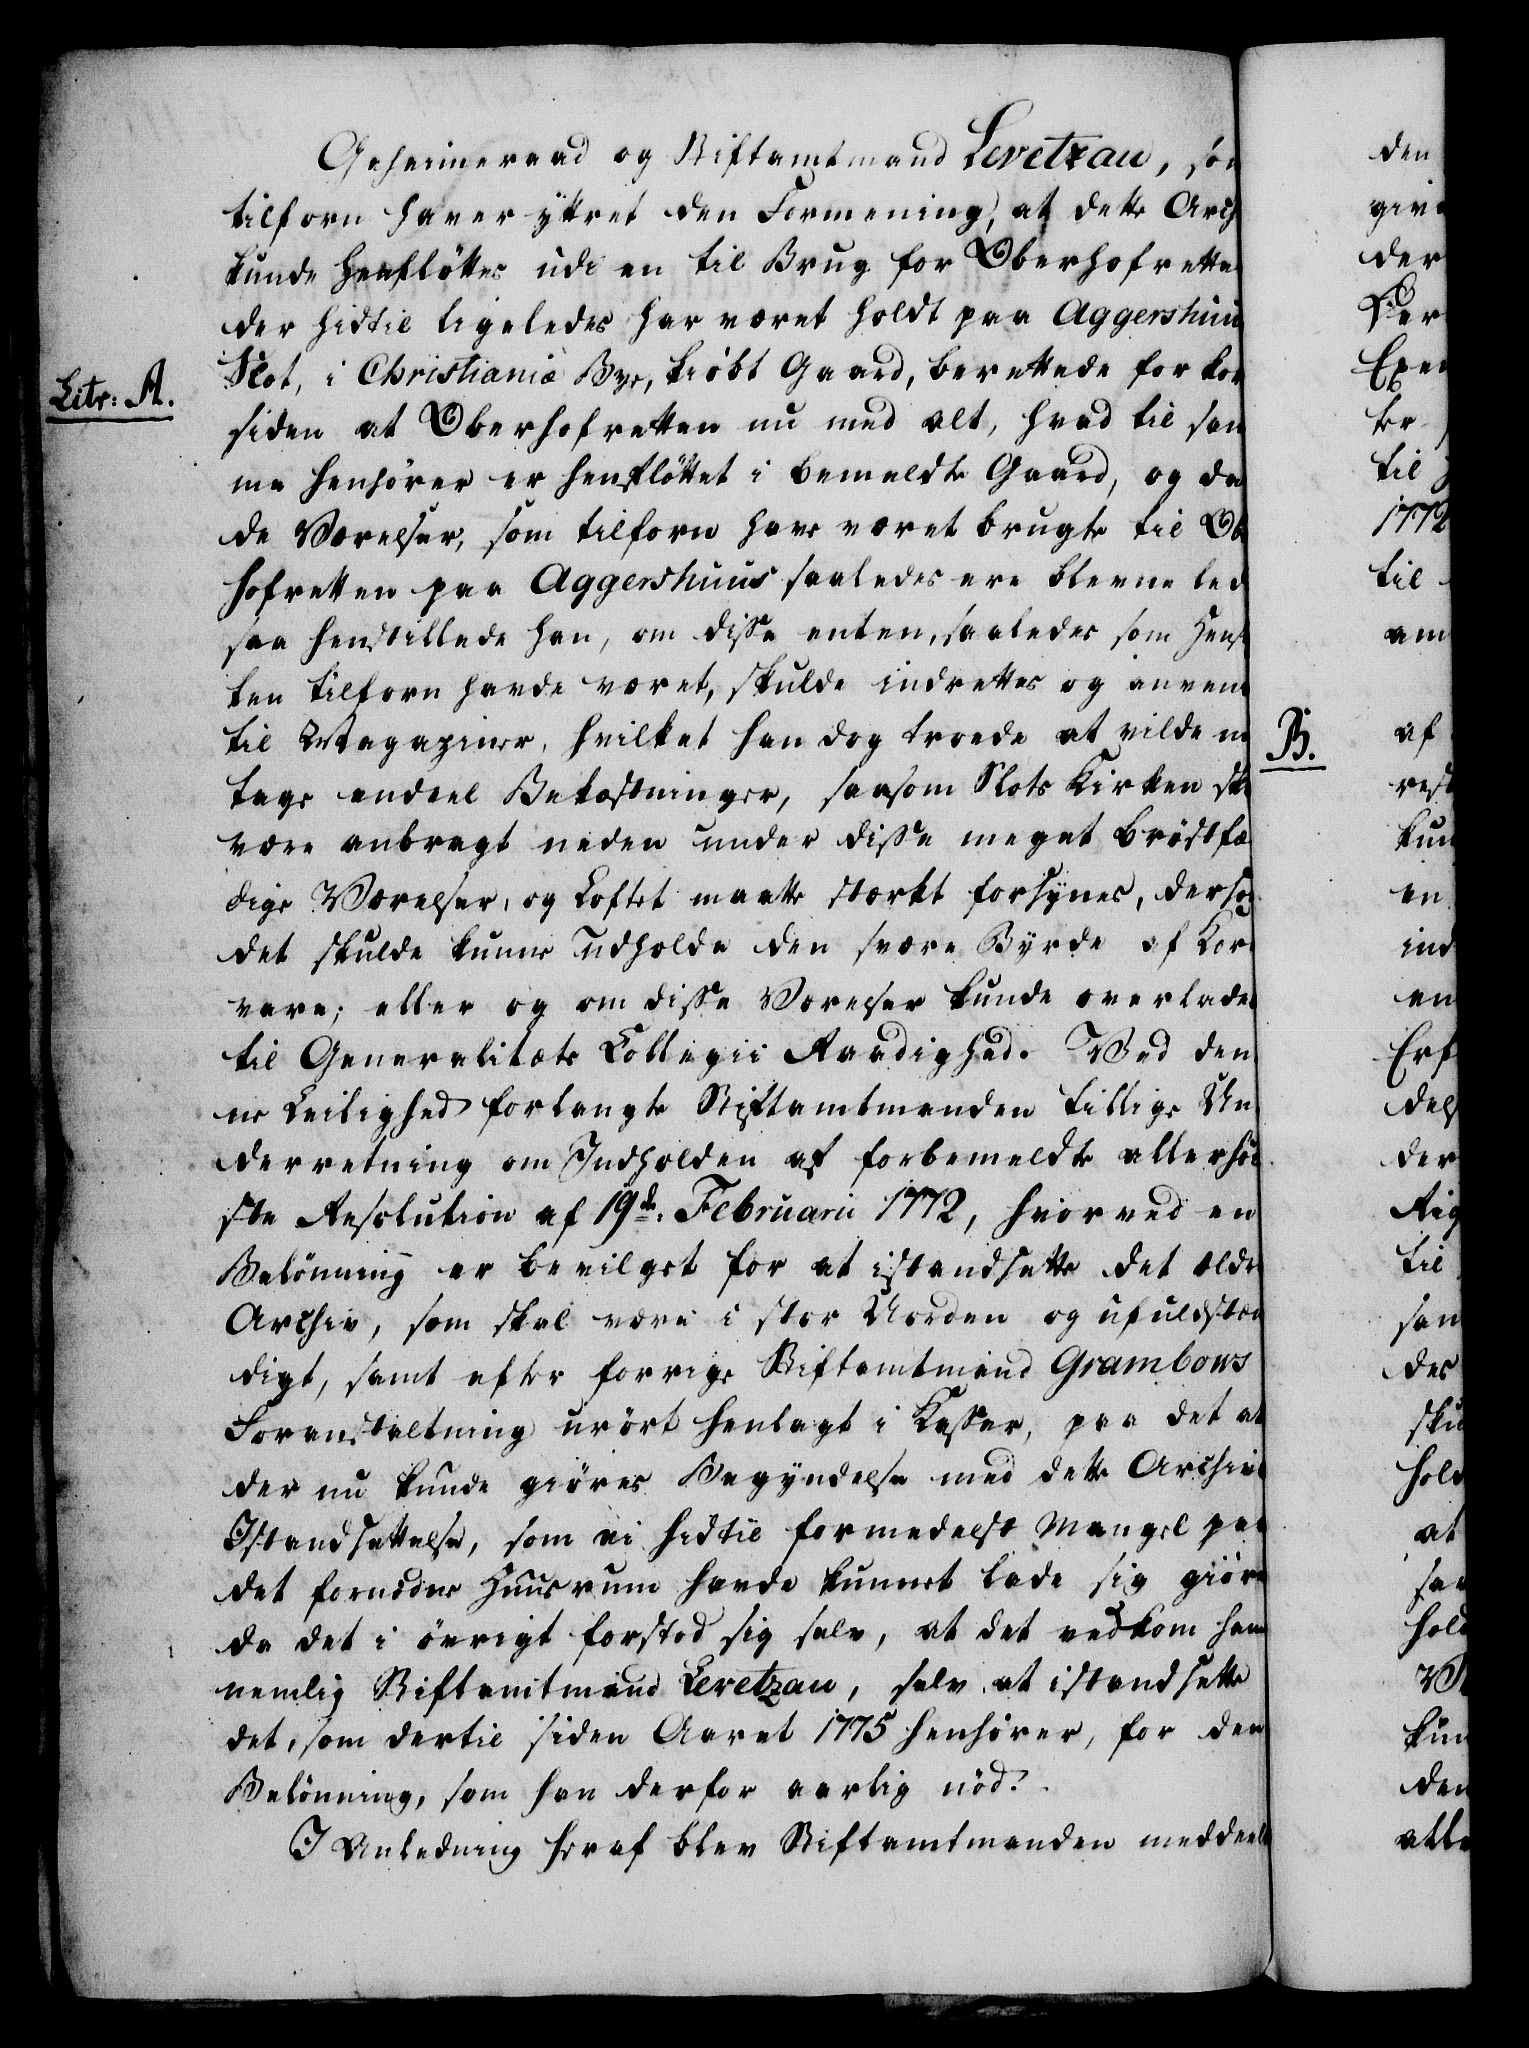 Geheimeraad og Stiftamtmand Levetzau, som
tilforn haver yttret den Formening, at dette Arch
kunde henflöttes udi en til Brug for Oberhofrette
der hidtil ligeledes har været holdt paa Aggershuus
Slot, i Christiania Bye, kiöbt Gaard, berettede for kor
Litr: A.
siden at Oberhofretten nu med alt, hvad til sam
me henhörer er henflöttet i bemeldte Gaard, og da
de Værelser, som tilforn have været brugte til Ob
hofretten paa Aggershuus saaledes ere blevne led
saa henstillede han, om disse enten, saaledes som Hens
ten tilforn havde været, skulde indrettes og anven
til Magaziner, hvilket han dog troede at vilde m
tage endeel Bekostninger, saasom Slots Kirken sk
være anbragt neden under disse meget bröstfæ
dige Værelser, og Loftet maatte stærkt forsynes, dersom
det skulde kunne udholde den svære Byrde af Kor
vare; eller og om disse Værelser kunde overlades
til Generalitets Collegii Raadighed. Ved den
ne Leilighed forlangte Stiftamtmanden tillige Un
derretning om Indholden af forbemeldte allerhöi
ste Resolution af 19de Februarii 1772, hvorved en
Belönning er bevilget for at istandsætte det ældre
Archiv, som skal være i stor Uorden og ufuldstæn
digt, samt efter forrige Stiftamtmand Grambows
Foranstaltning urört henlagt i Kasser, paa det at
der nu kunde giöres Begyndelse med dette Archivs
Istandsættelse, som ei hidtil formedelst Mangel paa
det fornödne Huusrum havde kunnet lade sig giöre
da det i övrigt forstod sig selv, at det vedkom ham
nemlig Stiftamtmand Levetzau, selv at istandsætte
det, som dertil siden Aaret 1775 henhörer, for den
Belönning, som han derfor aarlig nöd.
I Anledning heraf blev Stiftamtmanden meddeelt
den
give
der
Exe
ter
til
1772
til
am
B.
af
rest
kun
en
ind
en
Erf
dels
der
Rig
til
sam
des
sku
hold
at
saa
hold
kun
den
alle